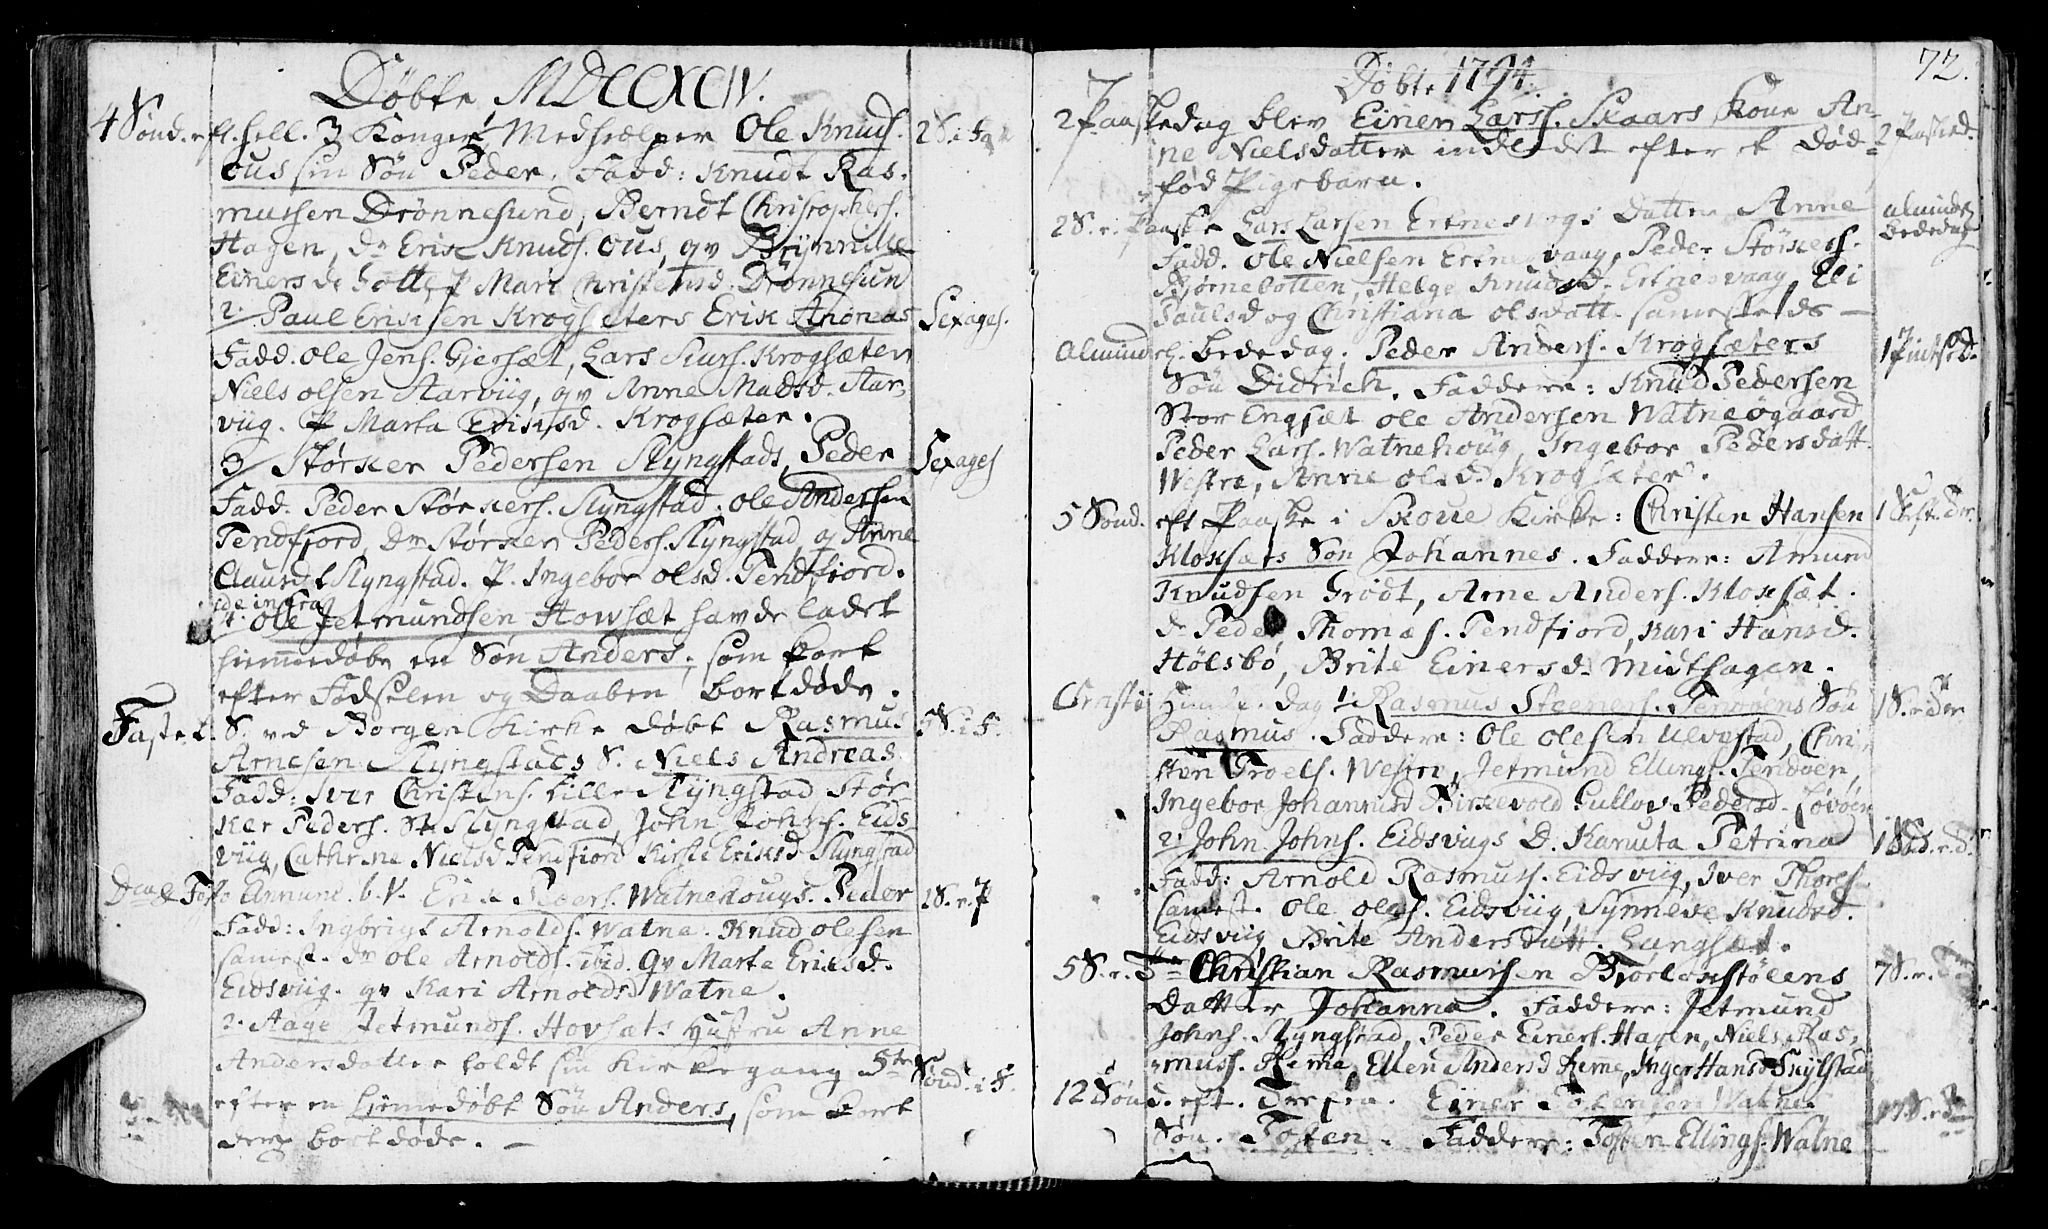 Döbte MDCCXCIV.
4 Sönd. eft. hell. 3 Konger Medhielper Ole Knuds. 2 S. i Fa
ous sin Sön Peder. Fadd: Knudt Ras-
mussen Drönnesund, Berndt Christophers.
Hagen, Dr Erik Knuds. Ous, qv Brynnille
Einersd. P Mari Christensd. Drönnesund
2. Paul Eriksen Krogsæters Erik Andreas Sexages.
Fadd. Ole Jens. Giersæt, Lars Siurs. Krogsæter
Niels Olsen Aarviig, qv Anne Madsd. Aar-
viig. P Marta Eriksd. Krogsæter.
3 Störker Pedersen Slyngstads Peder Sexages
Fadd. Peder Störkers. Slyngstad. Ole Andersen
Tendfjord, Dr Störker Peders. Slyngstad qv Anne
Clausd. Slyngstad. P. Ingebor Olsd. Tendfiord.
de infra
4. Ole Jetmundsen Howsæt havde ladet
hiemmedöbe en Sön Anders, som kort
efter Födselen og Daaben bortdöde.
Fastel. S. ved Borgen Kirke döbt Rasmus 5 S. i F.
Arnesen Slyngstads S. Niels Andreas
Fadd: Iver Christens. Lille Slyngstad Stör-
ker Peders. St. Slyngstad, John Johns. Eids-
viig, Cathrine Nielsd Tendfiord Kirsti Eriksd Slyngstad
Annunc. b. V. Erik Peders. Watnehougs Peder 1 S. e. P
Fadd: Ingbrigt Arnolds. Watne. Knud Olesen
samest. Dr Ole Arnolds. ibid. qv Marte Eriksd.
Eidsviig. qv Kari Arnoldsd Watne.
2. Aage Jetmunds. Hovsæts Hustru Anne
Andersdatter holdt sin Kirkegang 5te Sönd. i F.
efter en hiemedöbt Sön Anders, som kort
derefter bortdöde.
Döbte 1794. 72.
2 Paaskedag blev Einer Lars. Skaars Kone An- 2 Paasked.
ne Nielsdatter indledet efter et död-
föd Pigebarn.
2 S. e. Paaske Lars Larsen Ertnesvogs Datter Anne almindel. Bededag
Fadd. Ole Nielsen Ertnesvaag, Peder Störkers.
Björnebotten, Helge Knudsd. Ertnesvaag, Eli
Paulsd og Christiana Olsdatt. samesteds
Almindel. Bededag. Peder Anders. Krogsæters 1 Pintsed.
Sön Didrich. Faddere: Knud Pedersen
Stor Engsæt Ole Andersen Watneögaard
Peder Lars. Watnehoug, Ingebor Pedersdatt.
Westre, Anne Olsd. Krogsæter.
5 Sönd. eft Paaske i Skoue Kirke: Christen Hansen
Kloksæts Sön Johannes. Faddere: Amund
Knudsen Grödt, Arne Anders. Kloksæt.
Dr Peder Thomæs. Tendfiord, Kari Hansd.
Hölsbö, Brite Einersd. Midthagen.
Christi Himelf. Dag 1. Rasmus Steeners. Tenöens Sön
Rasmus. Faddere: Ole Olesen Ulvestad, Chri-
sten Troels. Westre, Jetmund Ellings. Tenöen,
Ingebor Johannisd Birkevold Pedersd. Lövöen
2. John Johns. Eidsviigs D. Kanuta Petrina
Fadd: Arnold Rasmuss. Eidsviig, Iver Thores.
samest. Ole Oles. Eidsviig, Synneve Knudsd.
Eidsviig Brite Andersdatt. Langsæt.
5 S. e. Tr. Christian Rasmussen Biorloestölens 7 S. e.
Datter Johanna. Faddere: Jetmund
Johns. Slyngstad, Peder Einers. Hagen, Niels Ras-
muss. Reme, Ellen Andersd Reme, Inger Hansd Suylstad
12 Sönd. eft. Trefin. Einer Tostensen Watnes
Sön. Tosten. Faddere: Tosten Ellings. Watne